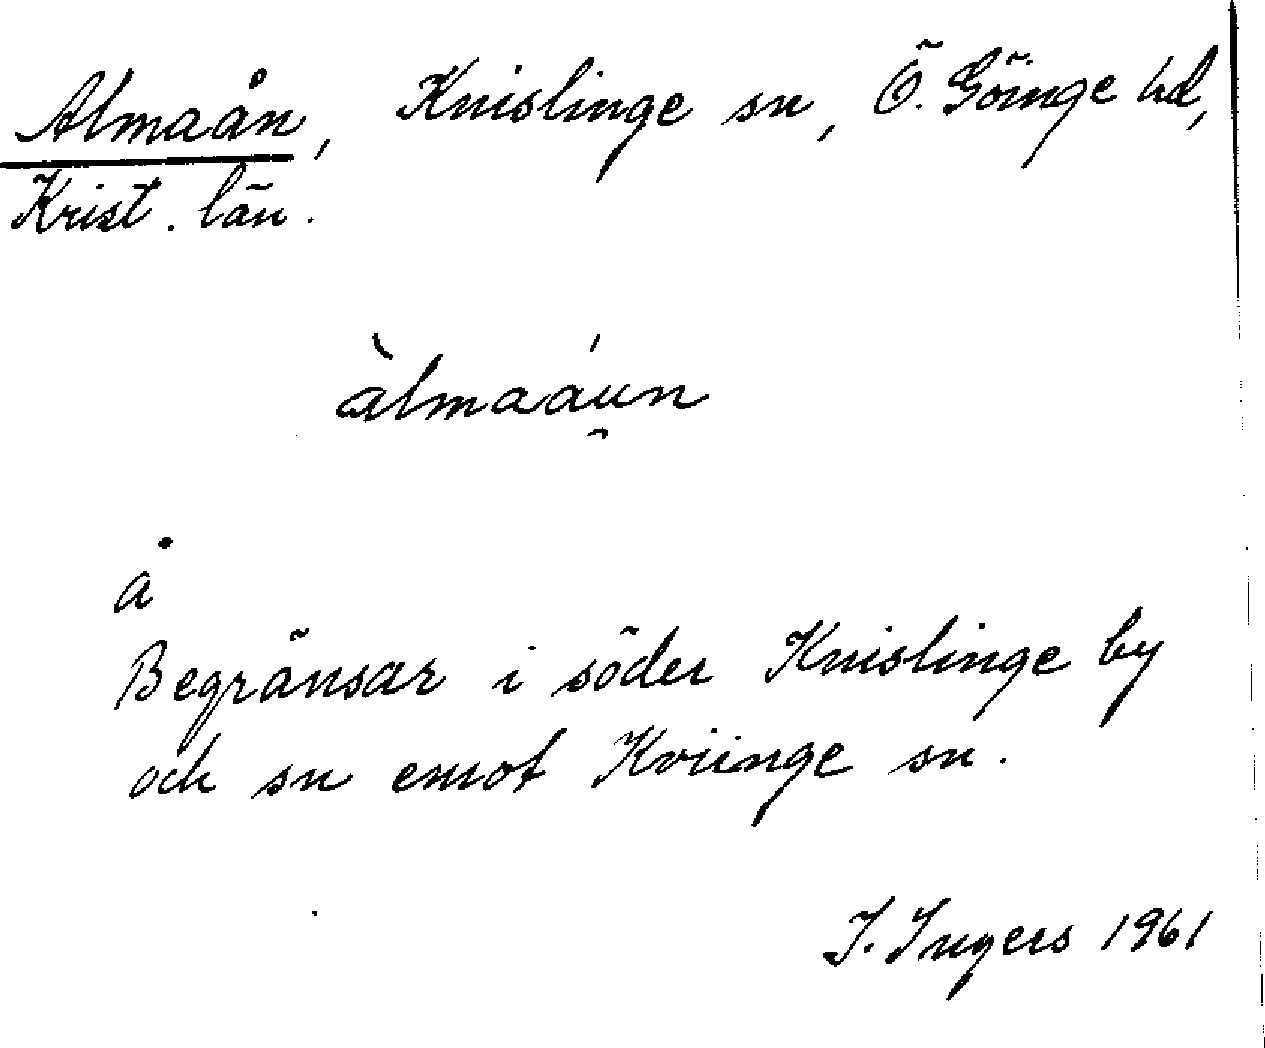 Almaån, Knislinge sn, Ö. Göinge hd,
Krist. län.
àlmaáun
å
Begränsar i söder Knislinge by
och sn emot Kviinge sn.
I. Ingers 1961